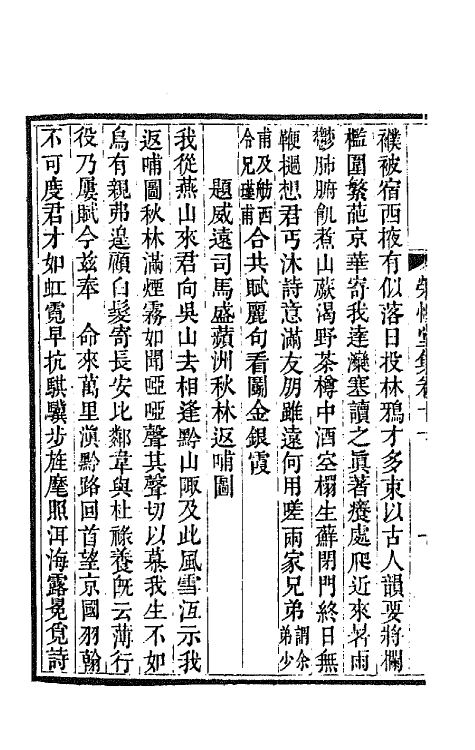 襆被宿西掖有似落日投林鴉才多束以古人韻要將欄
檻圍繁葩京華寄我達灤塞讀之眞著癢處爬近來暑雨
鬱肺腑飢煮山蕨渴野茶樽中酒空榻生蘚閉門終日無
鞭撾想君丐沐詩意滿友朋雖遠何用嗟兩家兄弟謂余弟少
甫及舫西令兄瑾甫合共賦麗句看圖金銀霞
題威遠司馬盛蘋洲秋林返哺圖
我從燕山來君向吳山去相逢黔山陬及此風雪沍示我
返哺圖秋林滿煙霧如聞啞啞聲其聲切以慕我生不如
烏有親弗遑顧白髮寄長安比鄰韋與杜祿養旣云薄行
役乃屢賦今兹奉　命來萬里滇黔路回首望京國羽翰
不可度君才如虹霓早抗騏驥步旌麾照洱海露冕覓詩